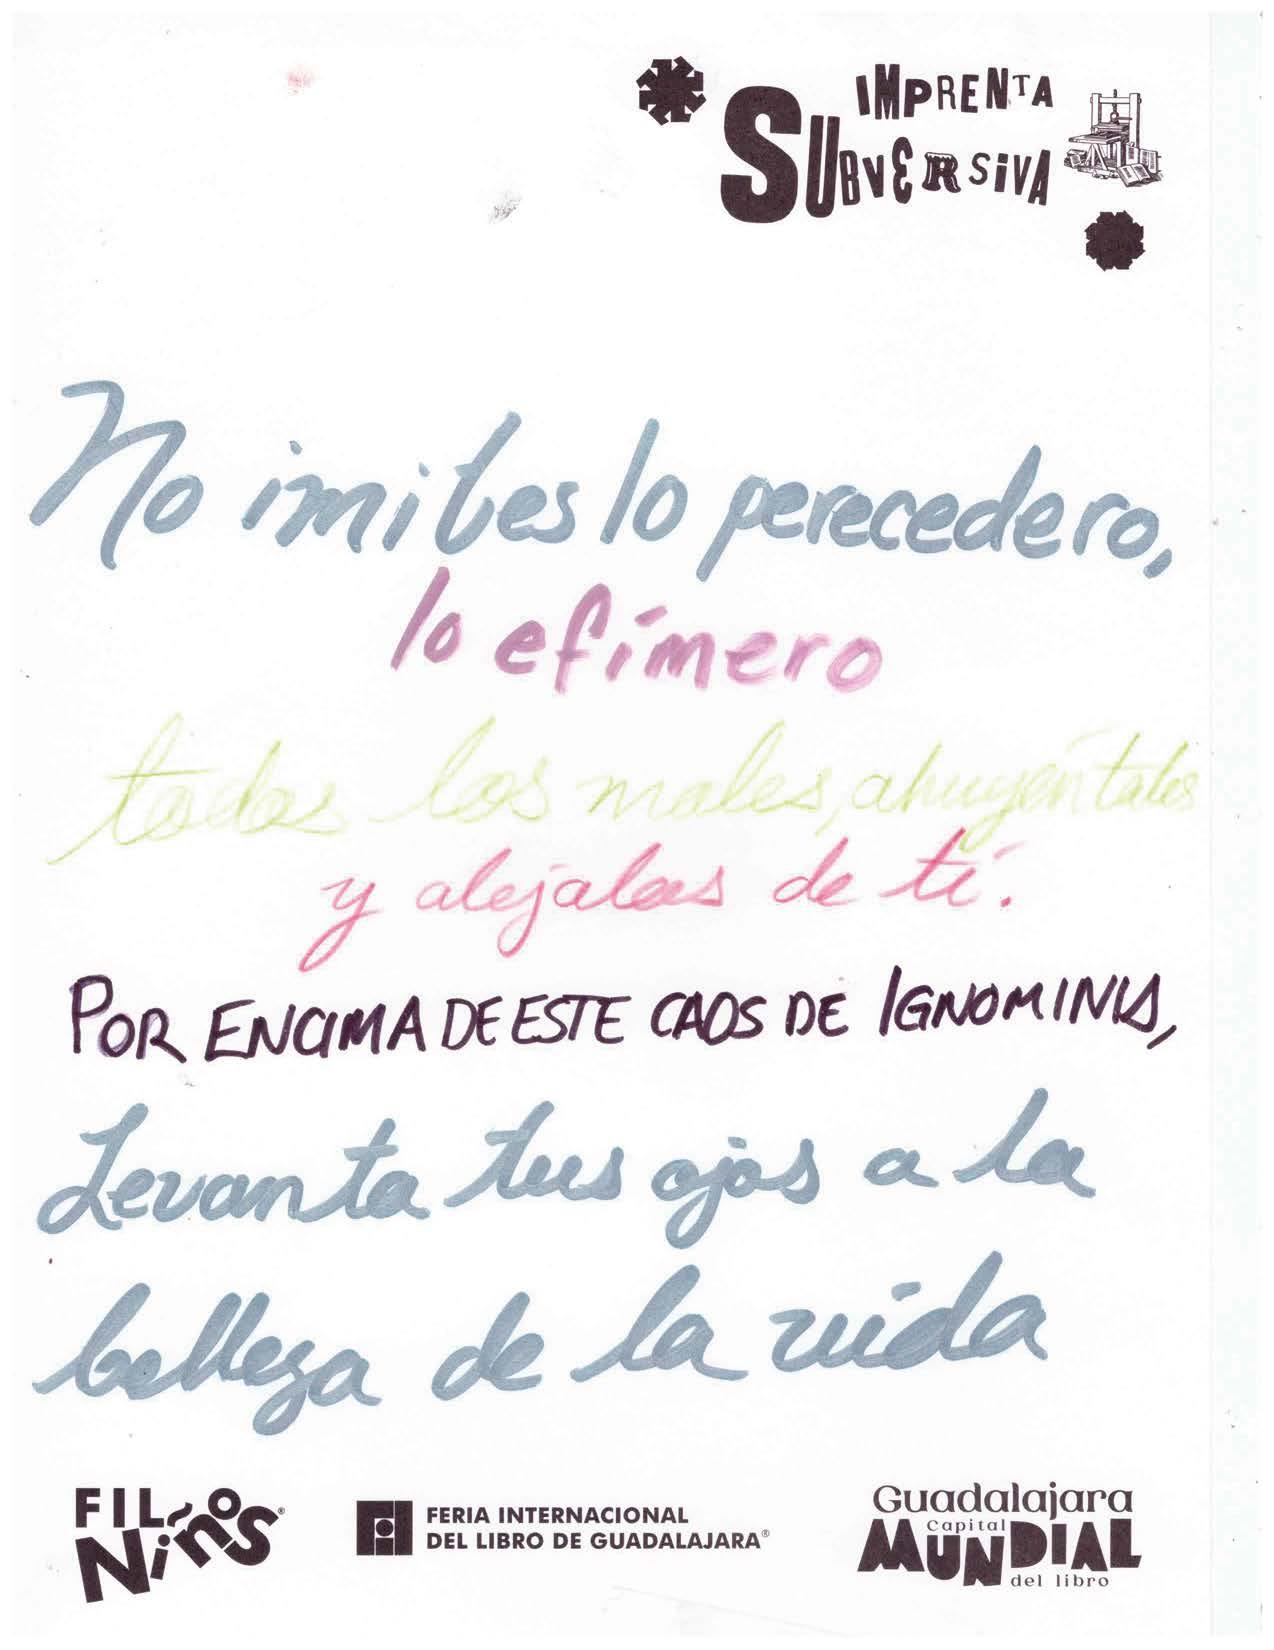 IMPRENTA
SUBVERSIVA
No imites lo perecedero,
lo efímero
todos los males, ahuyéntales
y alejalas de tí.
POR ENCIMA DE ESTE CAOS DE IGNOMINIA,
Levanta tus ojos a la
belleza de la vida
FIL Niños®
FERIA INTERNACIONAL
DEL LIBRO DE GUADALAJARA®
Guadalajara
Capital
MUNDIAL
del libro